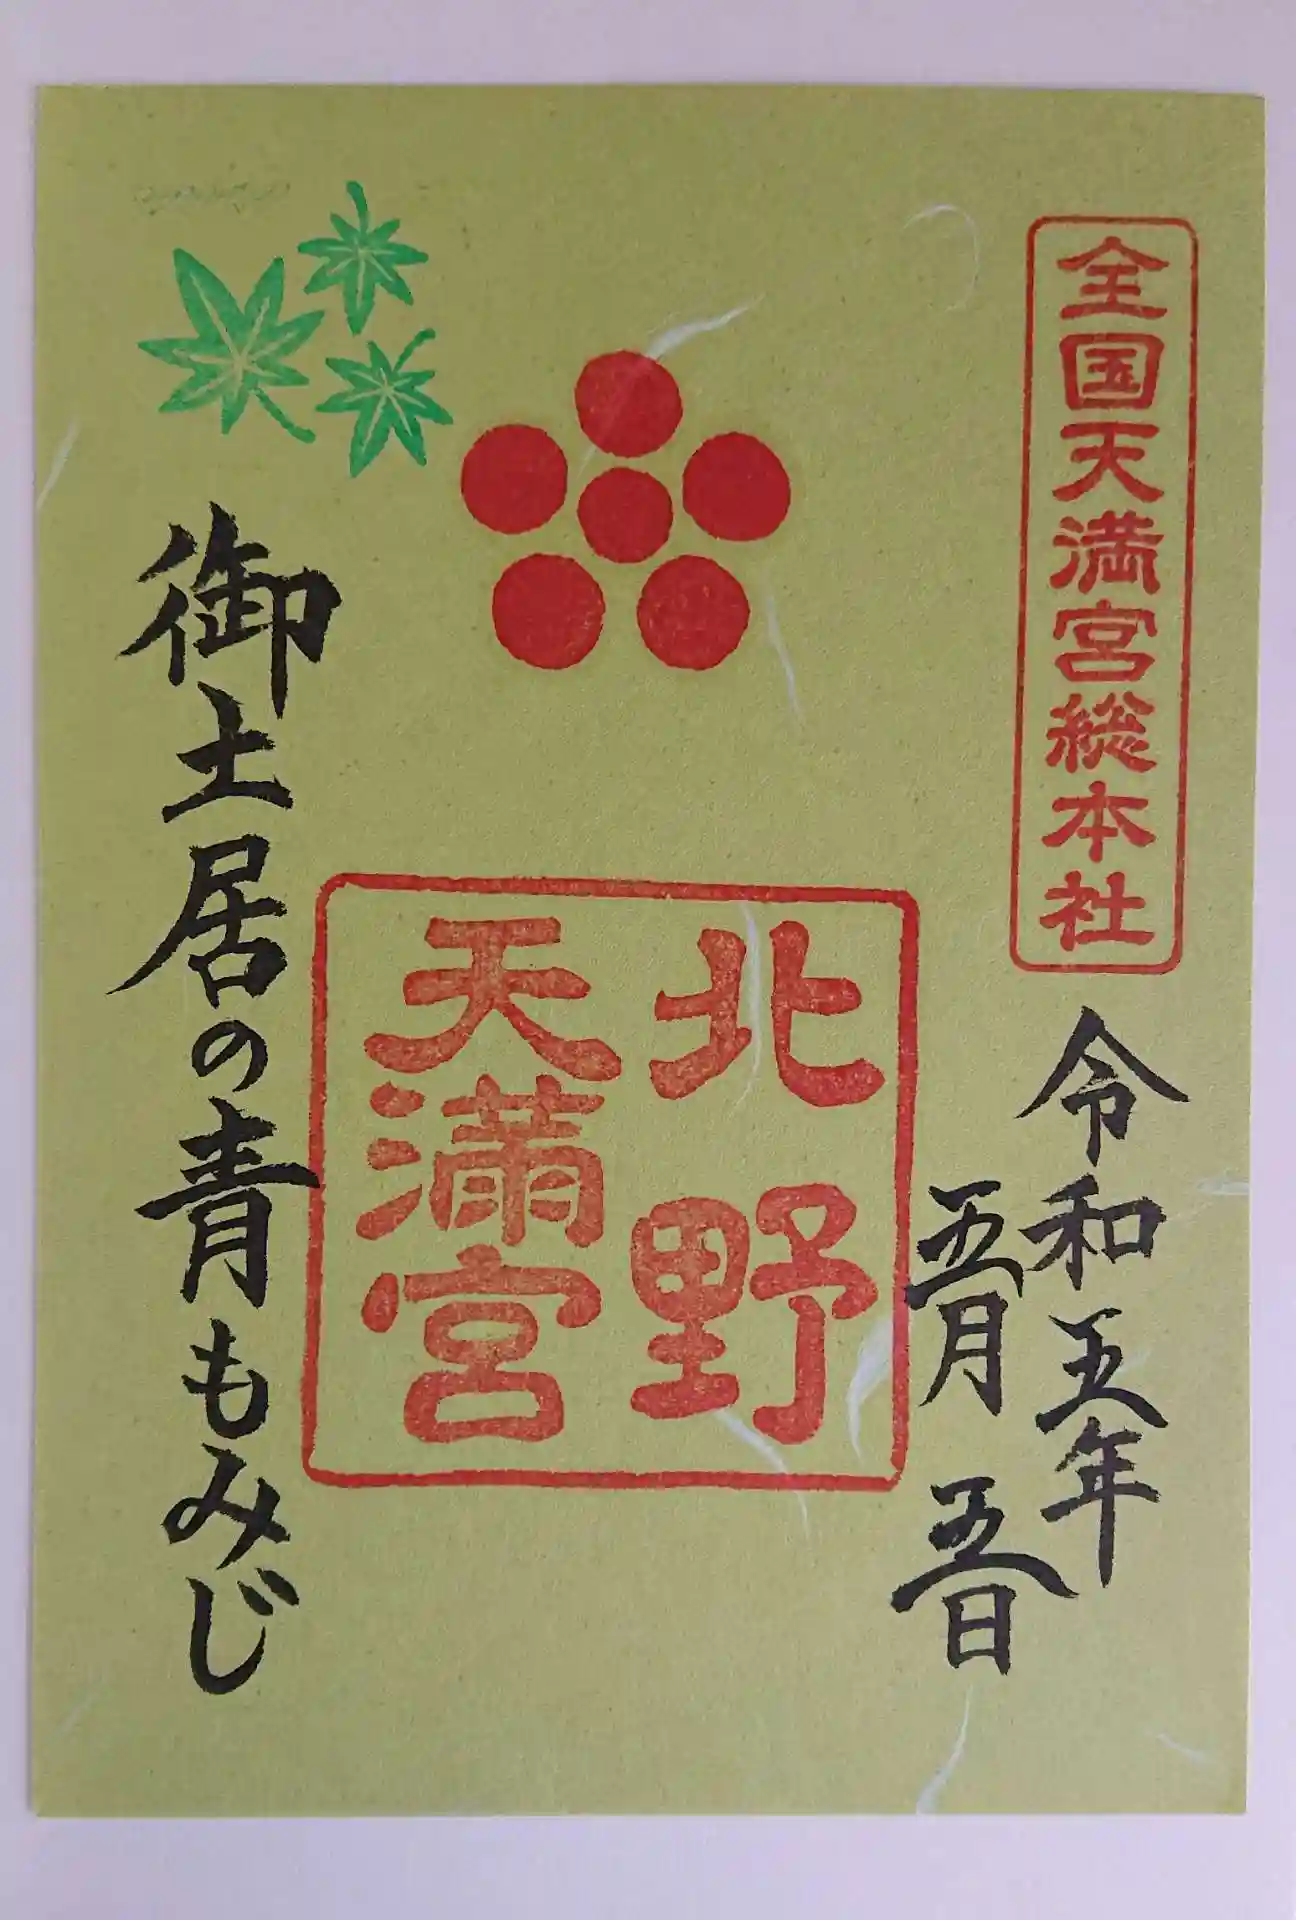 全国天満宮総本社
令和五年
五月五日
北野
天満宮
御土居の青もみじ